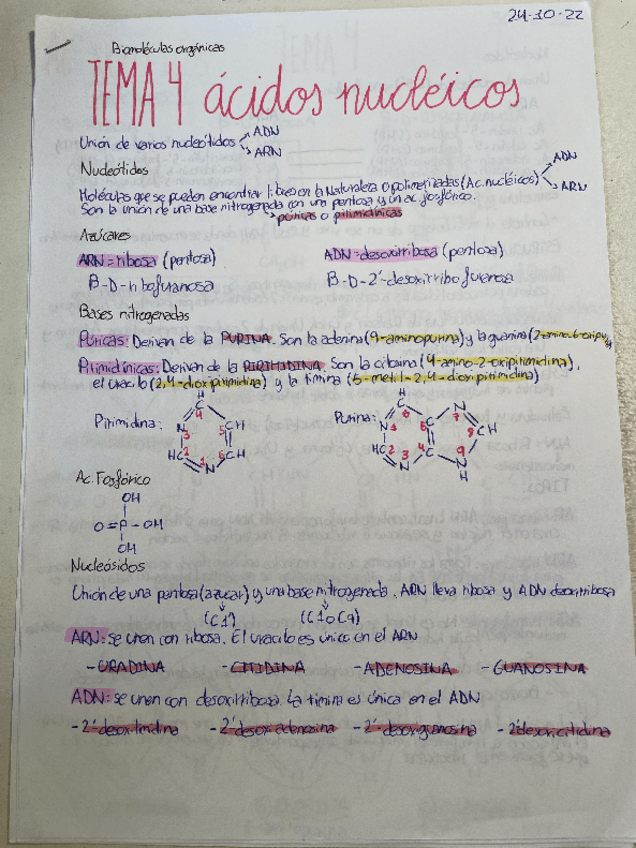 24-10-22
Biomoléculas orgánicas
TEMA 4 ácidos nucléicos
Unión de varios nucleótidos ADN
ARN
Nucleótidos
ADN
Moléculas que se pueden encontrar libres en la Naturaleza o polimerizadas (Ac. nucléicos) ARN
Son la unión de una base nitrogenada con una pentosa y un ac. fosfórico.
púricas o pilimidínicas
Azúcares
ARN = ribosa (pentosa) ADN = desoxirribosa (pentosa)
B-D-ribofuranosa B-D-2'-desoxirribofuranosa
Bases nitrogenadas
Púricas: Derivan de la PURINA. Son la adenina (9-aminopurina) y la guanina (2-amino-6-oxipu
Pirimidínicas: Derivan de la PIRIMIDINA. Son la citosina (4-amino-2-oxipitimidina),
el uracilo (2,4-dioxipitimidina) y la timina (5-metil-2,4-dioxipitimidina)
Pirimidina: H C 4 N 3 5 CH HC 2 1 N 6 CH
Purina: H C 6 N 1 5 C N 7 8 CH HC 2 3 N 4 C 9 N H
Ac. Fosfórico
OH
O=P-OH
OH
Nucleósidos
Unión de una pentosa (azucar) y una base nitrogenada. ARN lleva ribosa y ADN desoxirribosa
(C1') (C1 o C9)
ARN: se unen con ribosa. El uracilo es único en el ARN
- URADINA - CITIDINA - ADENOSINA - GUANOSINA
ADN: se unen con desoxirribosa. La timina es única en el ADN
- 2'desoxitimidina - 2'desoxiadenosina - 2'-desoxiguanosina - 2'desoxicitidina